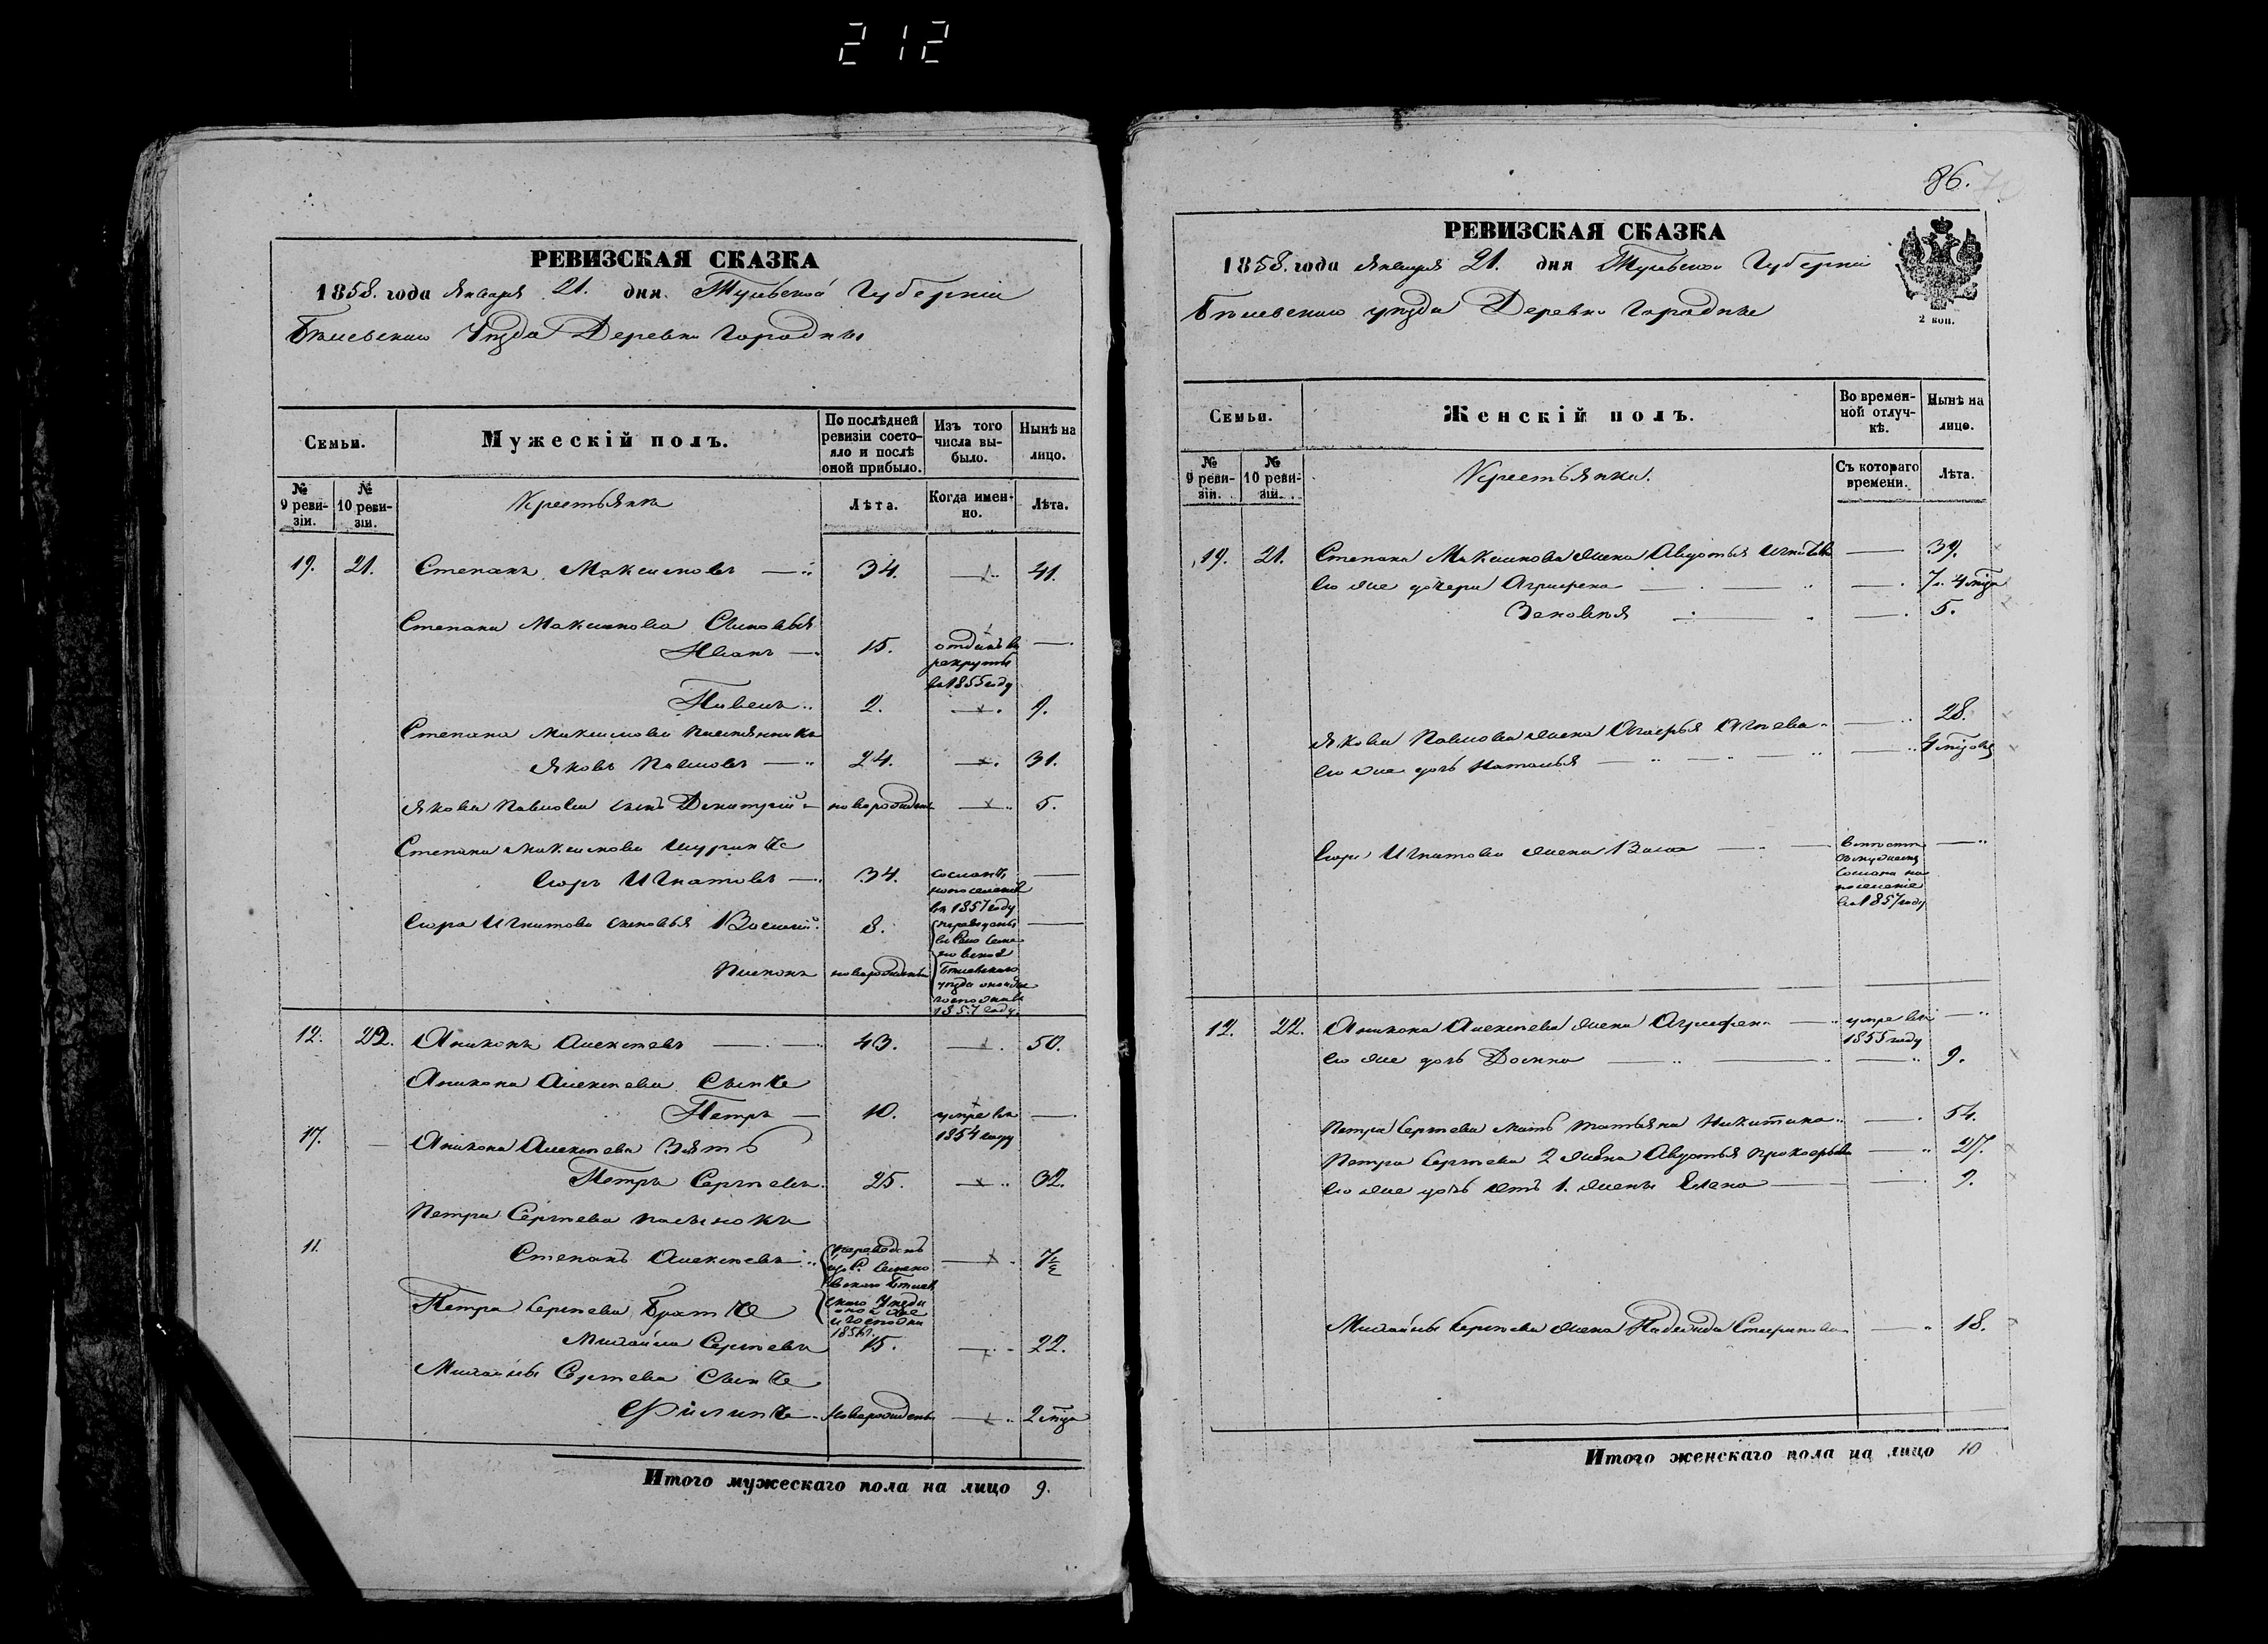 212
РЕВИЗСКАЯ СКАЗКА
1858. года Января 21. дня. Тульской Губерніи
Бѣлевскаго Уѣзда Деревни Городни
Семьи.
Мужескій полъ.
По послѣдней ревизіи состояло и послѣ оной прибыло.
Изъ того числа выбыло.
Нынѣ на лицо.
№ 9 ревизіи.
№ 10 ревизіи.
Крестьяне
Лѣта.
Когда именно.
Лѣта.
19. 21. Степанъ Максимовъ 34. 41.
Степана Максимова Сыновья
Иванъ 15. отданъ въ рекруты въ 1855 году
Павелъ 2. 9.
Степана Максимова племянникъ
Яковъ Павловъ 24. 31.
Якова Павлова сынъ Дмитрій новорожденъ 5.
Степана Максимова Шуринъ
Егоръ Игнатовъ 34. сосланъ на поселеніе въ 1857 году
Егора Игнатова сыновья Василій 8. переведены
Пименъ новорожденный Бѣлевскаго уѣзда 1857 году
12. 22. Аниконъ Алексѣевъ 43. 50.
Аникона Алексѣева Сынъ
Петръ 10. умре въ 1854 году
17. Аникона Алексѣева Зять
Петръ Сергѣевъ 25. 32.
Петра Сергѣева пасынокъ
11. Степанъ Алексѣевъ переведенъ 7½
Петра Сергѣева Братъ
Михайла Сергѣевъ 15. 22.
Михайлы Сергѣева Сынъ
Филипъ новорожденъ 2 мѣся
Итого мужескаго пола на лицо 9.
86.
РЕВИЗСКАЯ СКАЗКА
1858. года Января 21. дня Тульской Губерніи
Бѣлевскаго уѣзда Деревни Городни
2 коп.
Семьи.
Женскій полъ.
Во временной отлучкѣ.
Нынѣ на лицо.
№ 9 ревизіи.
№ 10 ревизіи.
Крестьянки.
Съ котораго времени.
Лѣта.
19. 21. Степана Максимова жена Авдотья Игнатьева 39.
Его же дочери Агрифена 7 л. 4 мѣся
Зеновья 5.
Якова Павлова жена 28.
Его же дочь Наталья 4 мѣсяцъ
Егора Игнатова жена Васса сослана на поселеніе въ 1857 году
12. 22. Аникона Алексѣева жена Агрифена умре въ 1855 году
Его же дочь Домна 9.
Петра Сергѣева мать Татьяна Никитина 54.
Петра Сергѣева 2 жена Авдотья Прокофьева 27.
Его же дочь отъ 1. жены Елена 9.
Михайлы Сергѣева жена Надежда 18.
Итого женскаго пола на лицо 10